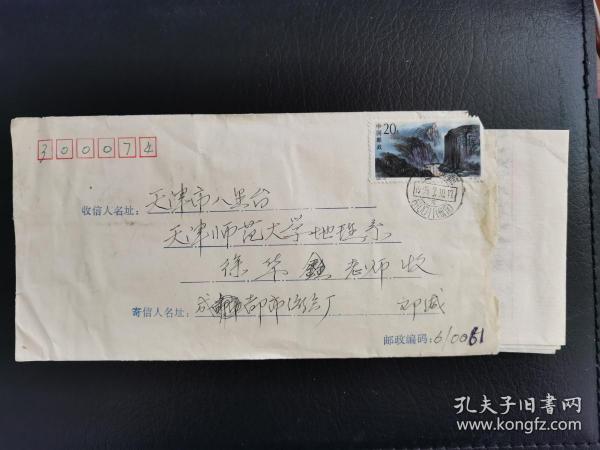 300074
20分
中国邮政
收信人名址：天津市八里台
天津师范大学地理系
徐华鑫老师收
寄信人名址：成都市
邮政编码：610061
孔夫子旧书网
www.kongfz.com